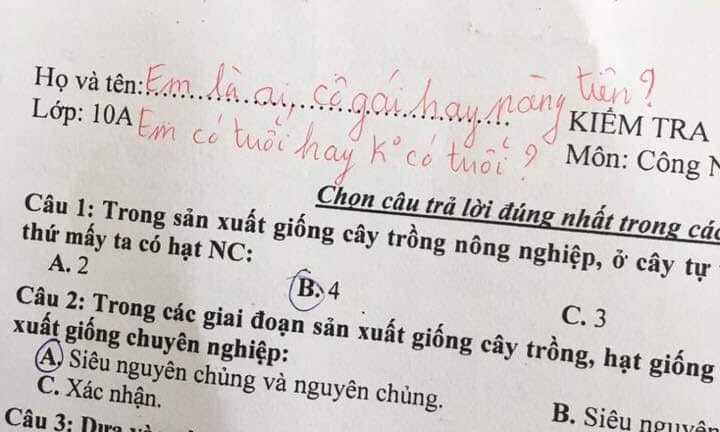 Họ và tên: Em là ai, cô gái hay nàng tiên?
Lớp: 10A Em có tuổi hay k° có tuổi?
KIỂM TRA
Môn: Công N
Chọn câu trả lời đúng nhất trong các
Câu 1: Trong sản xuất giống cây trồng nông nghiệp, ở cây tự
thứ mấy ta có hạt NC:
A. 2 B. 4 C. 3
Câu 2: Trong các giai đoạn sản xuất giống cây trồng, hạt giống
xuất giống chuyên nghiệp:
A. Siêu nguyên chủng và nguyên chủng. B. Siêu nguyên
C. Xác nhận.
Câu 3: Dựa